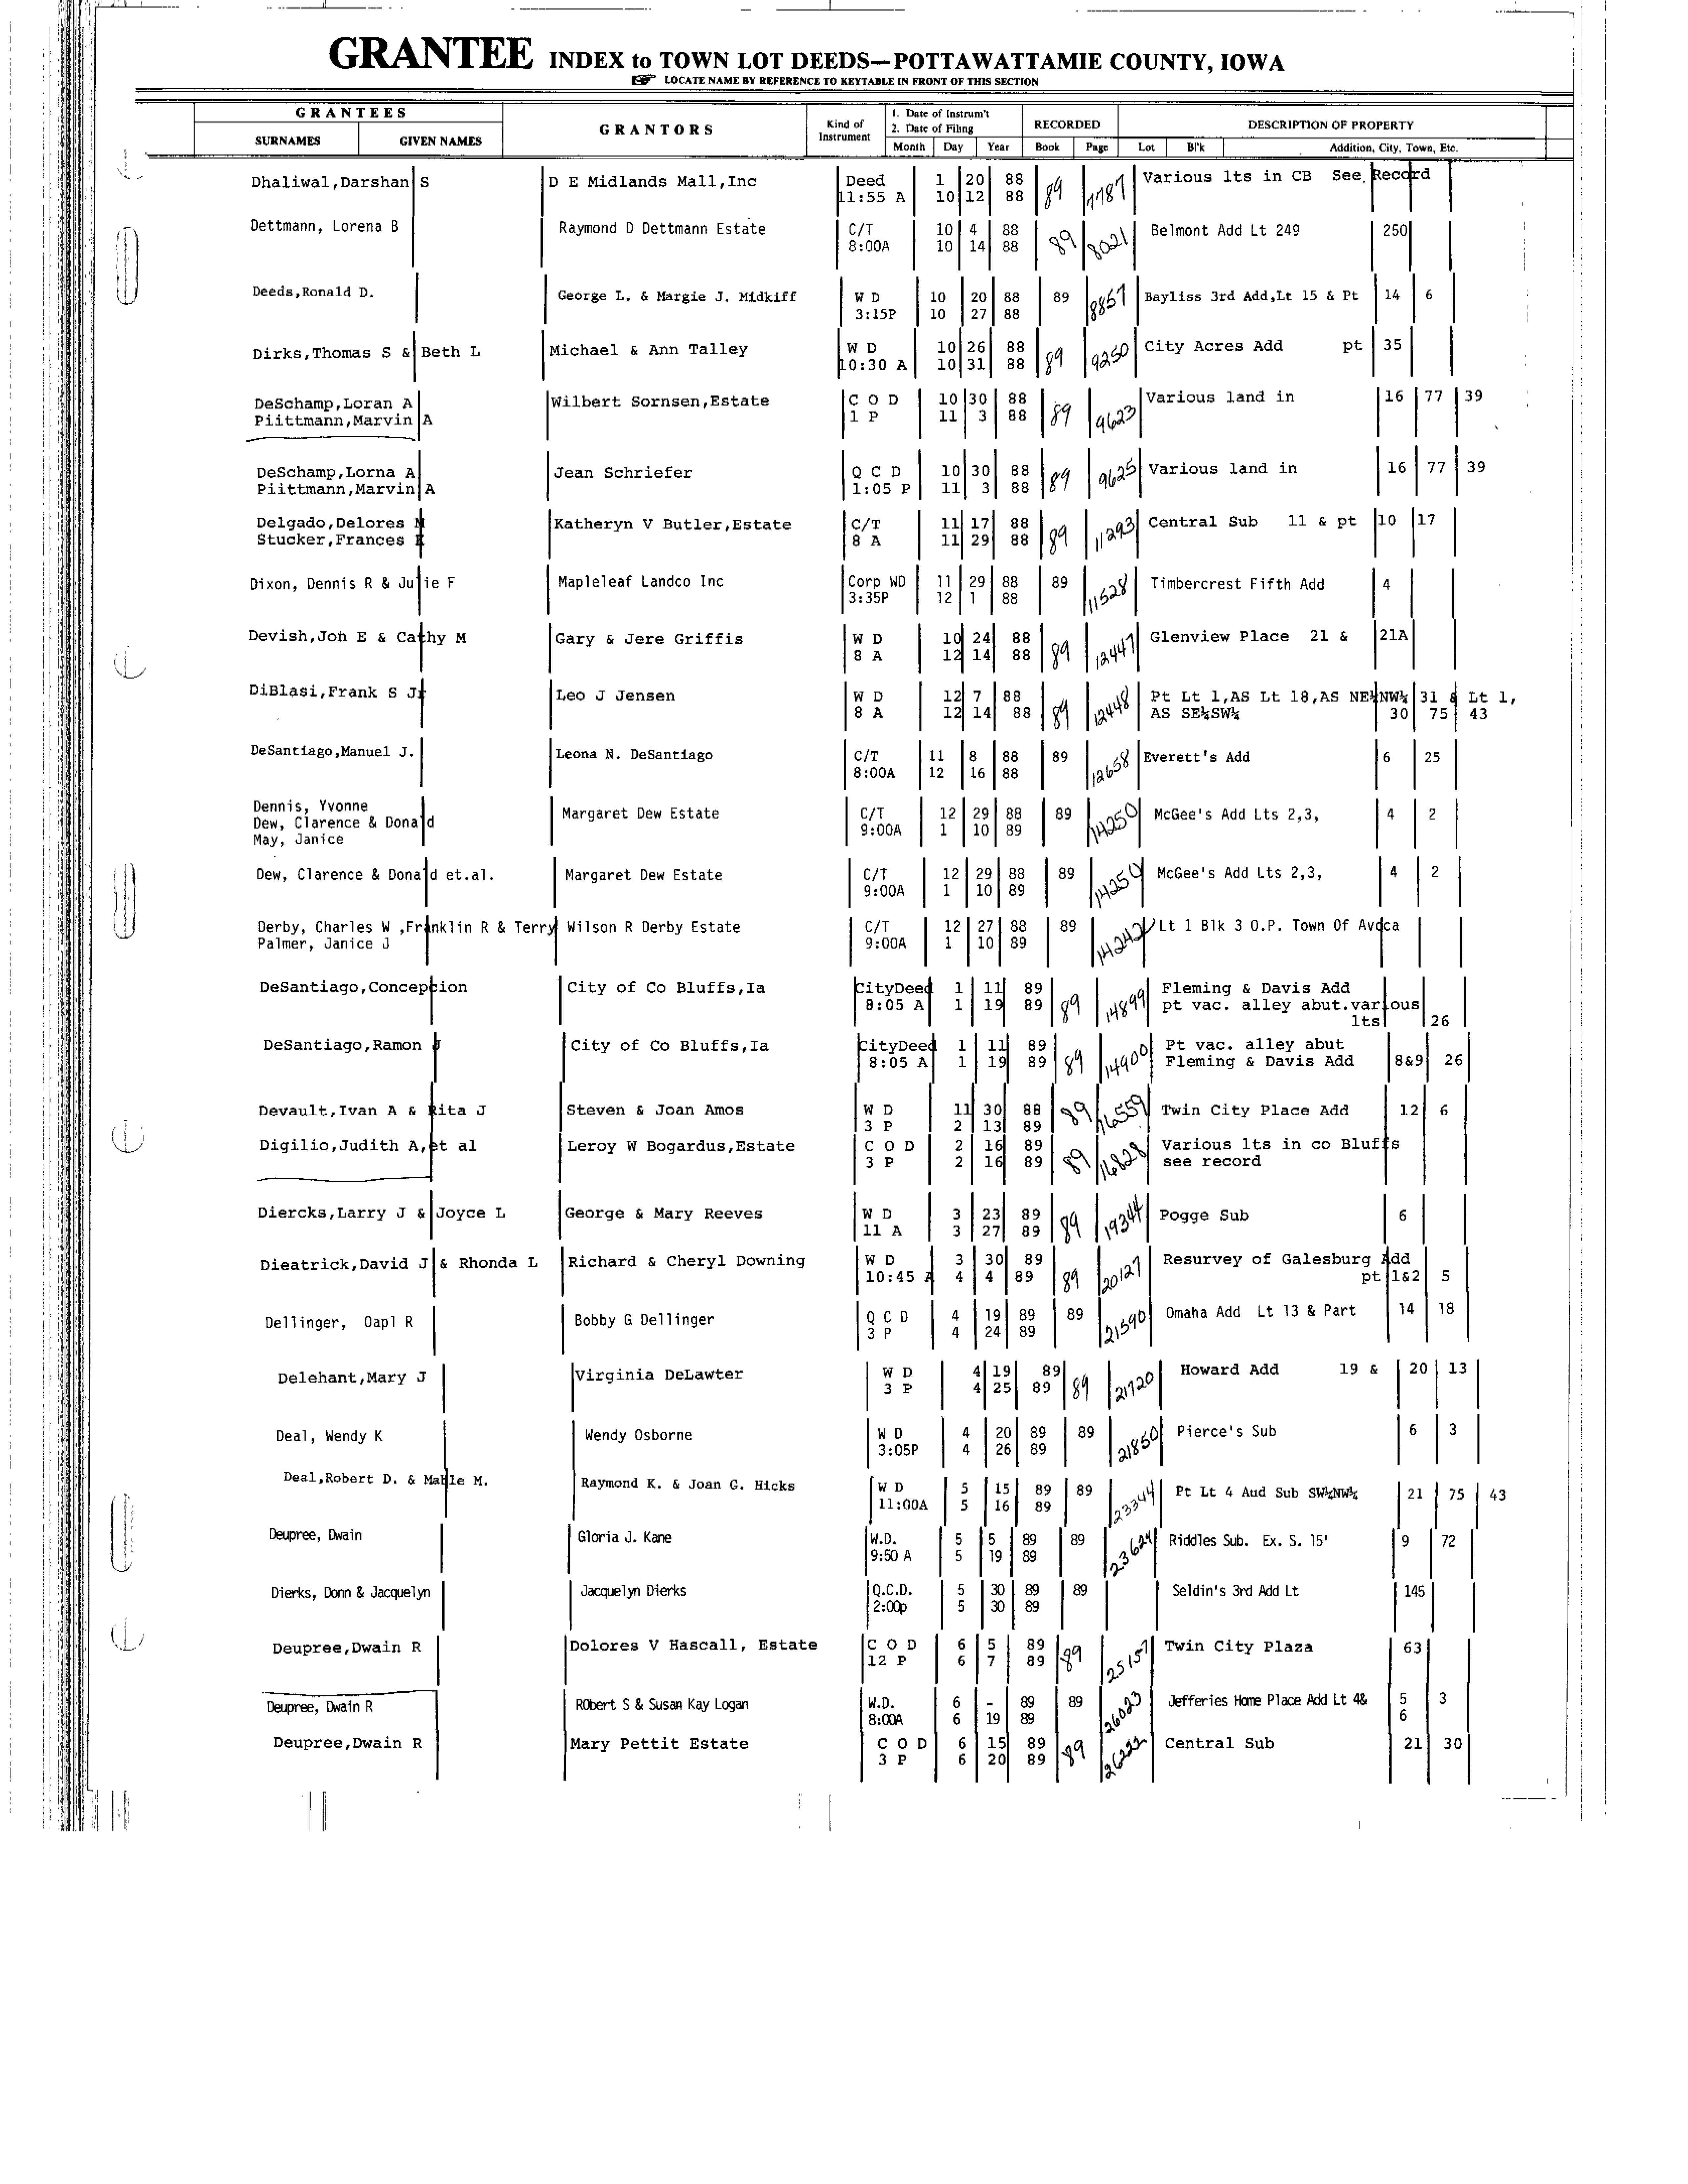 GRANTEE INDEX to TOWN LOT DEEDS—POTTAWATTAMIE COUNTY, IOWA
☞ LOCATE NAME BY REFERENCE TO KEYTABLE IN FRONT OF THIS SECTION
GRANTEES GRANTORS Kind of Instrument 1. Date of Instrum't 2. Date of Filing RECORDED DESCRIPTION OF PROPERTY
SURNAMES GIVEN NAMES Month Day Year Book Page Lot Bl'k Addition, City, Town, Etc.
Dhaliwal,Darshan S D E Midlands Mall,Inc Deed 1 20 88 89 7787 Various lts in CB See Record
11:55 A 10 12 88
Dettmann, Lorena B Raymond D Dettmann Estate C/T 10 4 88 89 8021 Belmont Add Lt 249 250
8:00A 10 14 88
Deeds,Ronald D. George L. & Margie J. Midkiff W D 10 20 88 89 8857 Bayliss 3rd Add,Lt 15 & Pt 14 6
3:15P 10 27 88
Dirks,Thomas S & Beth L Michael & Ann Talley W D 10 26 88 89 9250 City Acres Add pt 35
10:30 A 10 31 88
DeSchamp,Loran A Wilbert Sornsen,Estate C O D 10 30 88 89 9623 Various land in 16 77 39
Piittmann,Marvin A 1 P 11 3 88
DeSchamp,Lorna A Jean Schriefer Q C D 10 30 88 89 9625 Various land in 16 77 39
Piittmann,Marvin A 1:05 P 11 3 88
Delgado,Delores M Katheryn V Butler,Estate C/T 11 17 88 89 11293 Central Sub 11 & pt 10 17
Stucker,Frances E 8 A 11 29 88
Dixon, Dennis R & Julie F Mapleleaf Landco Inc Corp WD 11 29 88 89 11528 Timbercrest Fifth Add 4
3:35P 12 1 88
Devish,Jon E & Cathy M Gary & Jere Griffis W D 10 24 88 89 12447 Glenview Place 21 & 21A
8 A 12 14 88
DiBlasi,Frank S Jr Leo J Jensen W D 12 7 88 89 12448 Pt Lt 1,AS Lt 18,AS NE¼NW¼ 31 & Lt 1,
8 A 12 14 88 AS SE¼SW¼ 30 75 43
DeSantiago,Manuel J. Leona N. DeSantiago C/T 11 8 88 89 12658 Everett's Add 6 25
8:00A 12 16 88
Dennis, Yvonne Margaret Dew Estate C/T 12 29 88 89 14250 McGee's Add Lts 2,3, 4 2
Dew, Clarence & Donald 9:00A 1 10 89
May, Janice
Dew, Clarence & Donald et.al. Margaret Dew Estate C/T 12 29 88 89 14250 McGee's Add Lts 2,3, 4 2
9:00A 1 10 89
Derby, Charles W ,Franklin R & Terry Wilson R Derby Estate C/T 12 27 88 89 14242 Lt 1 Blk 3 O.P. Town Of Avoca
Palmer, Janice J 9:00A 1 10 89
DeSantiago,Concepcion City of Co Bluffs,Ia CityDeed 1 11 89 89 14899 Fleming & Davis Add
8:05 A 1 19 89 pt vac. alley abut.various
lts 26
DeSantiago,Ramon J City of Co Bluffs,Ia CityDeed 1 11 89 89 14900 Pt vac. alley abut
8:05 A 1 19 89 Fleming & Davis Add 8&9 26
Devault,Ivan A & Rita J Steven & Joan Amos W D 11 30 88 89 16559 Twin City Place Add 12 6
3 P 2 13 89
Digilio,Judith A,et al Leroy W Bogardus,Estate C O D 2 16 89 89 16828 Various lts in co Bluffs
3 P 2 16 89 see record
Diercks,Larry J & Joyce L George & Mary Reeves W D 3 23 89 89 19344 Pogge Sub 6
11 A 3 27 89
Dieatrick,David J & Rhonda L Richard & Cheryl Downing W D 3 30 89 89 20127 Resurvey of Galesburg Add
10:45 A 4 4 89 pt 1&2 5
Dellinger, Oapl R Bobby G Dellinger Q C D 4 19 89 89 21590 Omaha Add Lt 13 & Part 14 18
3 P 4 24 89
Delehant,Mary J Virginia DeLawter W D 4 19 89 89 21720 Howard Add 19 & 20 13
3 P 4 25 89
Deal, Wendy K Wendy Osborne W D 4 20 89 89 21850 Pierce's Sub 6 3
3:05P 4 26 89
Deal,Robert D. & Mable M. Raymond K. & Joan G. Hicks W D 5 15 89 89 23344 Pt Lt 4 Aud Sub SW¼NW¼ 21 75 43
11:00A 5 16 89
Deupree, Dwain Gloria J. Kane W.D. 5 5 89 89 23624 Riddles Sub. Ex. S. 15' 9 72
9:50 A 5 19 89
Dierks, Donn & Jacquelyn Jacquelyn Dierks Q.C.D. 5 30 89 89 Seldin's 3rd Add Lt 145
2:00p 5 30 89
Deupree,Dwain R Dolores V Hascall, Estate C O D 6 5 89 89 25157 Twin City Plaza 63
12 P 6 7 89
Deupree, Dwain R RObert S & Susan Kay Logan W.D. 6 - 89 89 26023 Jefferies Home Place Add Lt 4& 5 3
8:00A 6 19 89 6
Deupree,Dwain R Mary Pettit Estate C O D 6 15 89 89 Central Sub 21 30
3 P 6 20 89